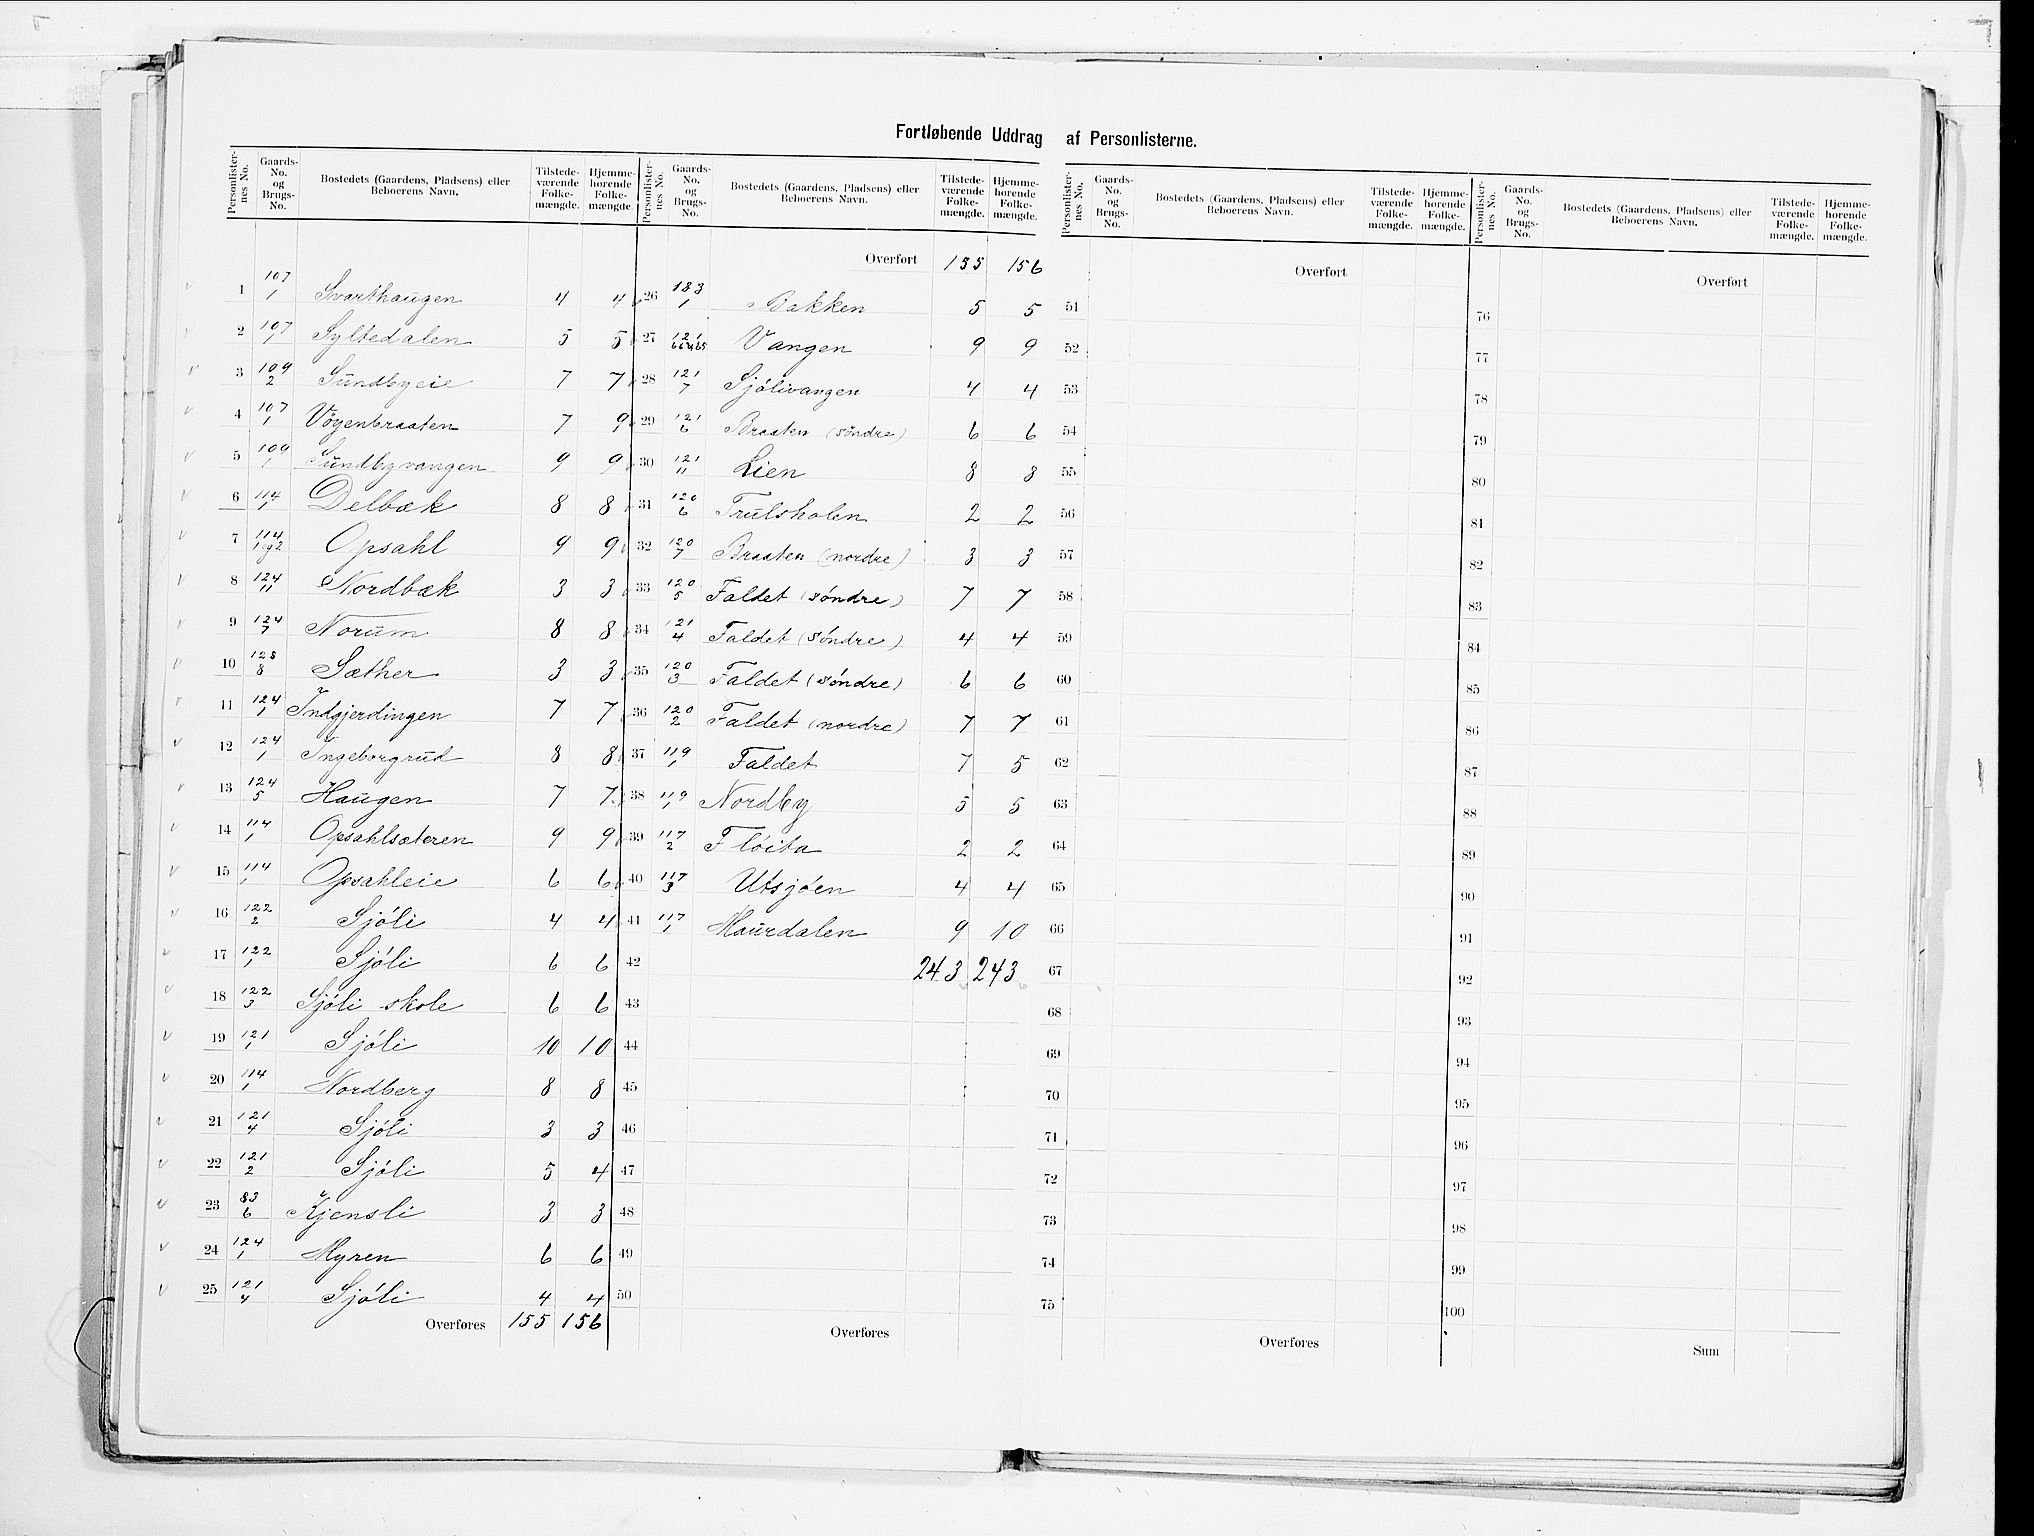 Fortløbende Uddrag af Personlisterne.
Personlister-nes No. | Gaards-No. og Brugs-No. | Bostedets (Gaardens, Pladsens) eller Beboerens Navn. | Tilstede-værende Folke-mængde. | Hjemme-hørende Folke-mængde.
1 | 107/1 | Svarthaugen | 4 | 4
2 | 107/1 | Syltedalen | 5 | 5
3 | 109/2 | Sundbyeie | 7 | 7
4 | 107/1 | Vöyenbraaten | 7 | 9
5 | 109/1 | Sundbyvangen | 9 | 9
6 | 114/1 | Delbæk | 8 | 8
7 | 114/1 og 2 | Opsahl | 9 | 9
8 | 124/11 | Nordbæk | 3 | 3
9 | 124/7 | Norum | 8 | 8
10 | 128/8 | Sæther | 3 | 3
11 | 124/1 | Indgjerdingen | 7 | 7
12 | 124/1 | Ingeborgrud | 8 | 8
13 | 124/5 | Haugen | 7 | 7
14 | 114/1 | Opsahlsæteren | 9 | 9
15 | 114/1 | Opsahleie | 6 | 6
16 | 122/2 | Sjöli | 4 | 4
17 | 122/1 | Sjöli | 6 | 6
18 | 122/3 | Sjöli skole | 6 | 6
19 | 121/1 | Sjöli | 10 | 10
20 | 114/1 | Nordberg | 8 | 8
21 | 121/4 | Sjöli | 3 | 3
22 | 121/2 | Sjöli | 5 | 4
23 | 83/6 | Kjensli | 3 | 3
24 | 124/1 | Myren | 6 | 6
25 | 121/4 | Sjöli | 4 | 4
Overføres 155 156
Personlister-nes No. | Gaards-No. og Brugs-No. | Bostedets (Gaardens, Pladsens) eller Beboerens Navn. | Tilstede-værende Folke-mængde. | Hjemme-hørende Folke-mængde.
Overført 155 156
26 | 183/1 | Bakken | 5 | 5
27 | 121 | Vangen | 9 | 9
28 | 121/7 | Sjölivangen | 4 | 4
29 | 121/6 | Braaten (söndre) | 6 | 6
30 | 121/11 | Lien | 8 | 8
31 | 120/6 | Trulsholen | 2 | 2
32 | 120/7 | Braaten (nordre) | 3 | 3
33 | 120/5 | Faldet (söndre) | 7 | 7
34 | 121/4 | Faldet (söndre) | 4 | 4
35 | 120/3 | Faldet (söndre) | 6 | 6
36 | 120/2 | Faldet (nordre) | 7 | 7
37 | 119/1 | Faldet | 7 | 5
38 | 119/1 | Nordby | 5 | 5
39 | 117/2 | Flöita | 2 | 2
40 | 117/3 | Utsjöen | 4 | 4
41 | 117/1 | Maurdalen | 9 | 10
42 | 243 | 243
43
44
45
46
47
48
49
50
Overføres
Personlister-nes No. | Gaards-No. og Brugs-No. | Bostedets (Gaardens, Pladsens) eller Beboerens Navn. | Tilstede-værende Folke-mængde. | Hjemme-hørende Folke-mængde.
Overført
51
52
53
54
55
56
57
58
59
60
61
62
63
64
65
66
67
68
69
70
71
72
73
74
75
Overføres
Personlister-nes No. | Gaards-No. og Brugs-No. | Bostedets (Gaardens, Pladsens) eller Beboerens Navn. | Tilstede-værende Folke-mængde. | Hjemme-hørende Folke-mængde.
Overført
76
77
78
79
80
81
82
83
84
85
86
87
88
89
90
91
92
93
94
95
96
97
98
99
100
Sum